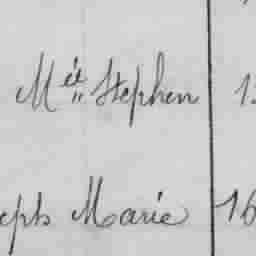 Mée Stephen 1
eph Marie 16